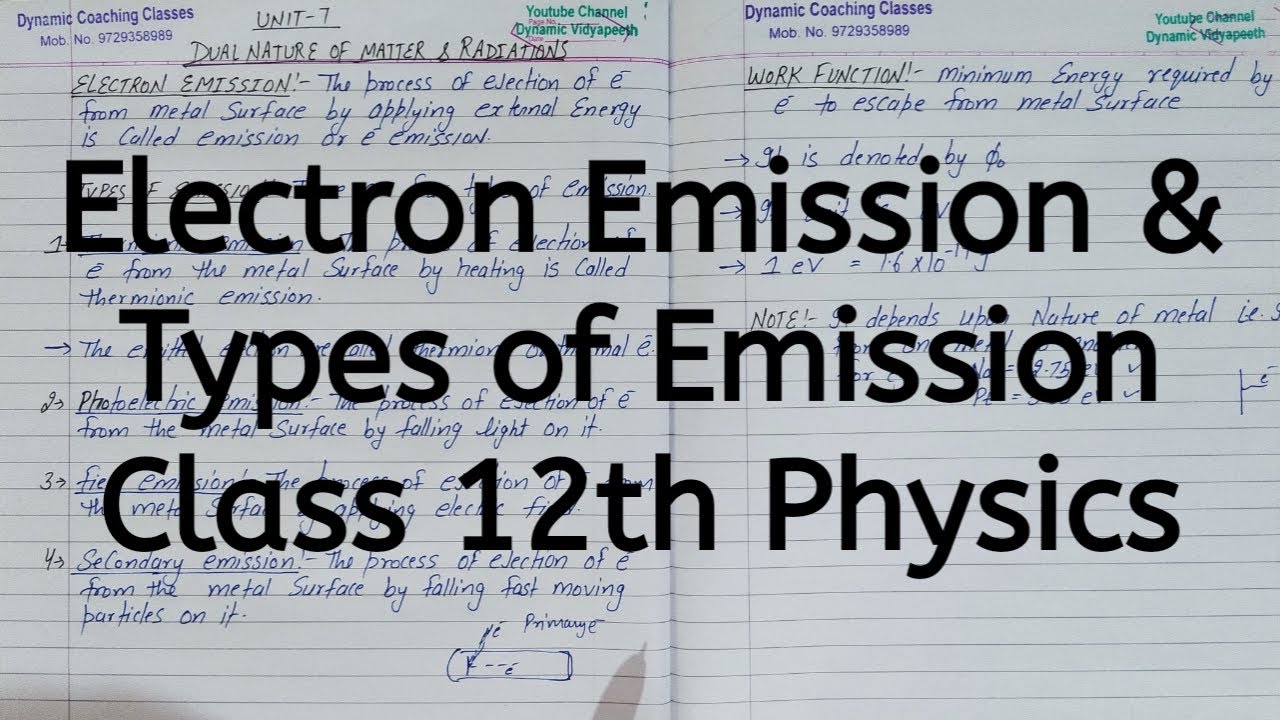 Dynamic Coaching Classes
Mob. No. 9729358989
UNIT-7
Youtube Channel
Dynamic Vidyapeeth
DUAL NATURE OF MATTER & RADIATIONS
ELECTRON EMISSION!- The process of ejection of e̅
from metal Surface by applying external Energy
is Called emission or e̅ emission.
TYPES OF of emission.
1 of ejection of
e̅ from the metal Surface by heating is Called
thermionic emission.
→ The
2→ Photoelectric emission:- The process of ejection of e̅
from the metal Surface by falling light on it.
3→ field emission!- The process of
the metal Surface by applying electric
4→ Secondary emission!- The process of ejection of e̅
from the metal Surface by falling fast moving
particles on it.
e̅ Primary e̅
e̅
Dynamic Coaching Classes
Mob. No. 9729358989
Youtube Channel
Dynamic Vidyapeeth
WORK FUNCTION!- minimum Energy required by
e̅ to escape from metal Surface
→ It is denoted by ϕ₀
→ 1 eV = 1.6 ×10 J
NOTE!- It depends upon Nature of metal i.e.
e̅
Electron Emission &
Types of Emission
Class 12th Physics